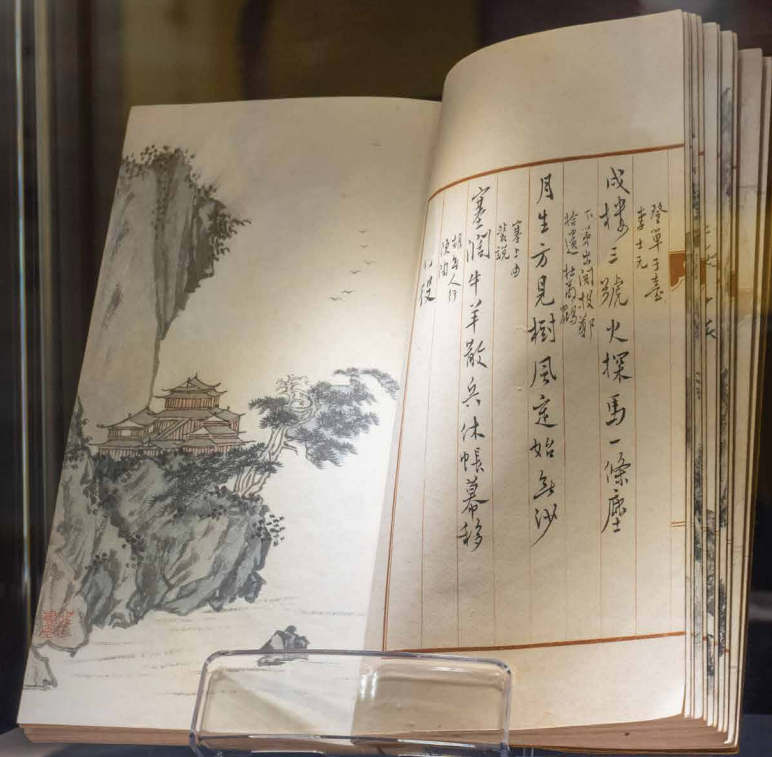 登單于臺
李士元
戍樓三號火探馬一條塵
下第出關投鄭
拾遺杜荀鶴
月生方見樹風定始無沙
塞上曲
裴說
塞闊牛羊散兵休帳幕移
胡無人行
陳陶